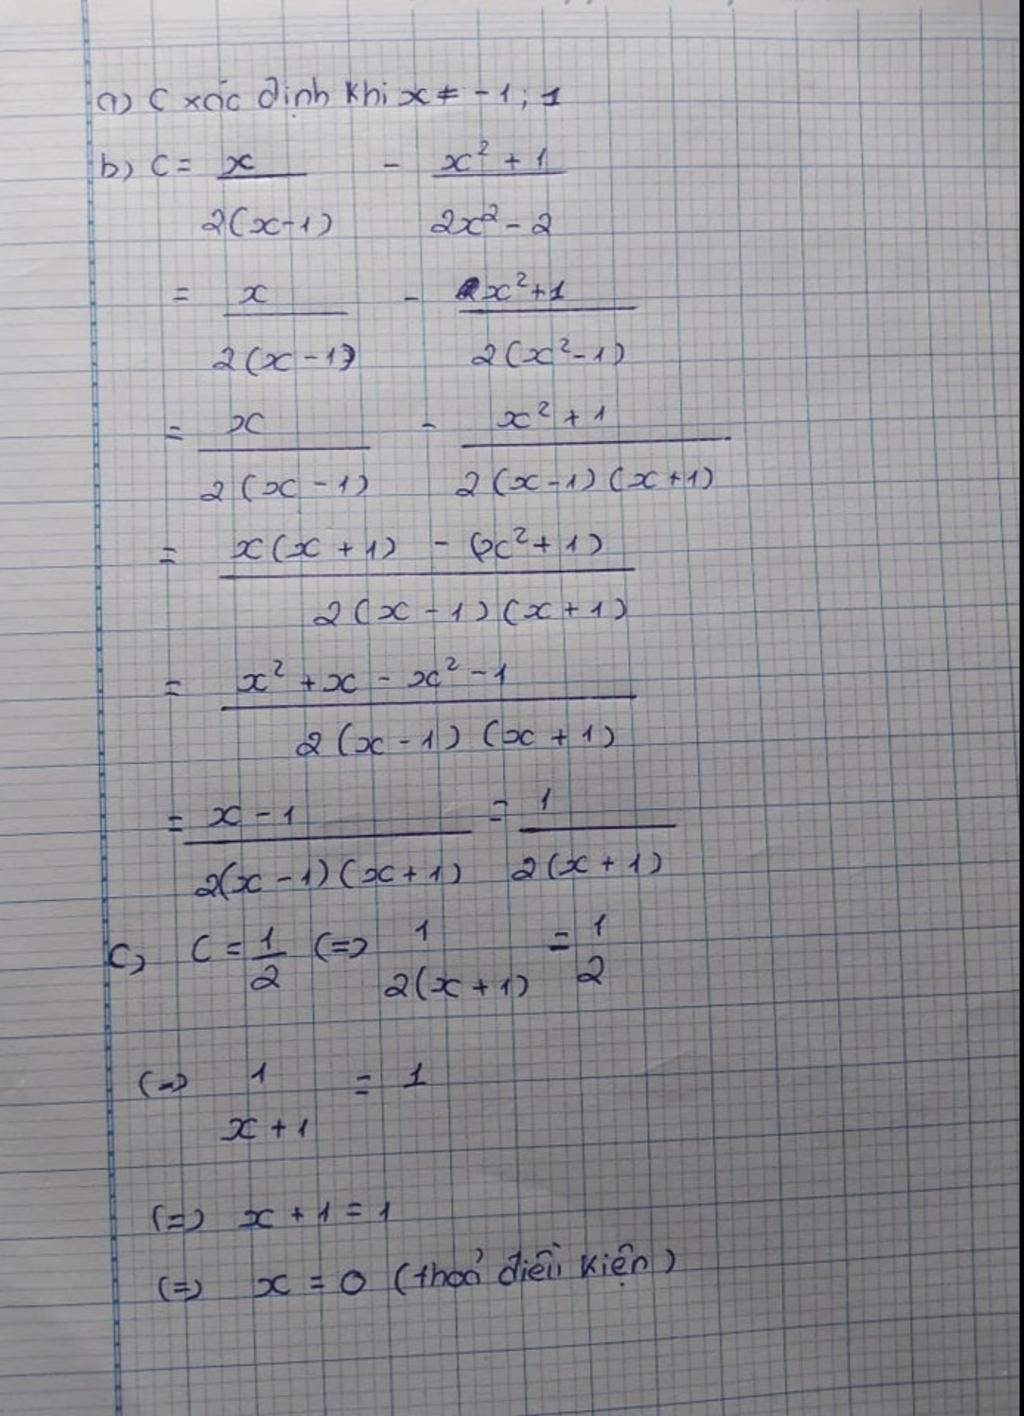 a) C xác định khi x ≠ -1; 1
b) C = x/2(x-1) - x²+1/2x²-2
= x/2(x-1) - x²+1/2(x²-1)
= x/2(x-1) - x²+1/2(x-1)(x+1)
= x(x+1) - (x²+1)/2(x-1)(x+1)
= x²+x-x²-1/2(x-1)(x+1)
= x-1/2(x-1)(x+1) = 1/2(x+1)
c) C = 1/2 (=) 1/2(x+1) = 1/2
(=) 1/x+1 = 1
(=) x+1=1
(=) x = 0 (thoả điều kiện)